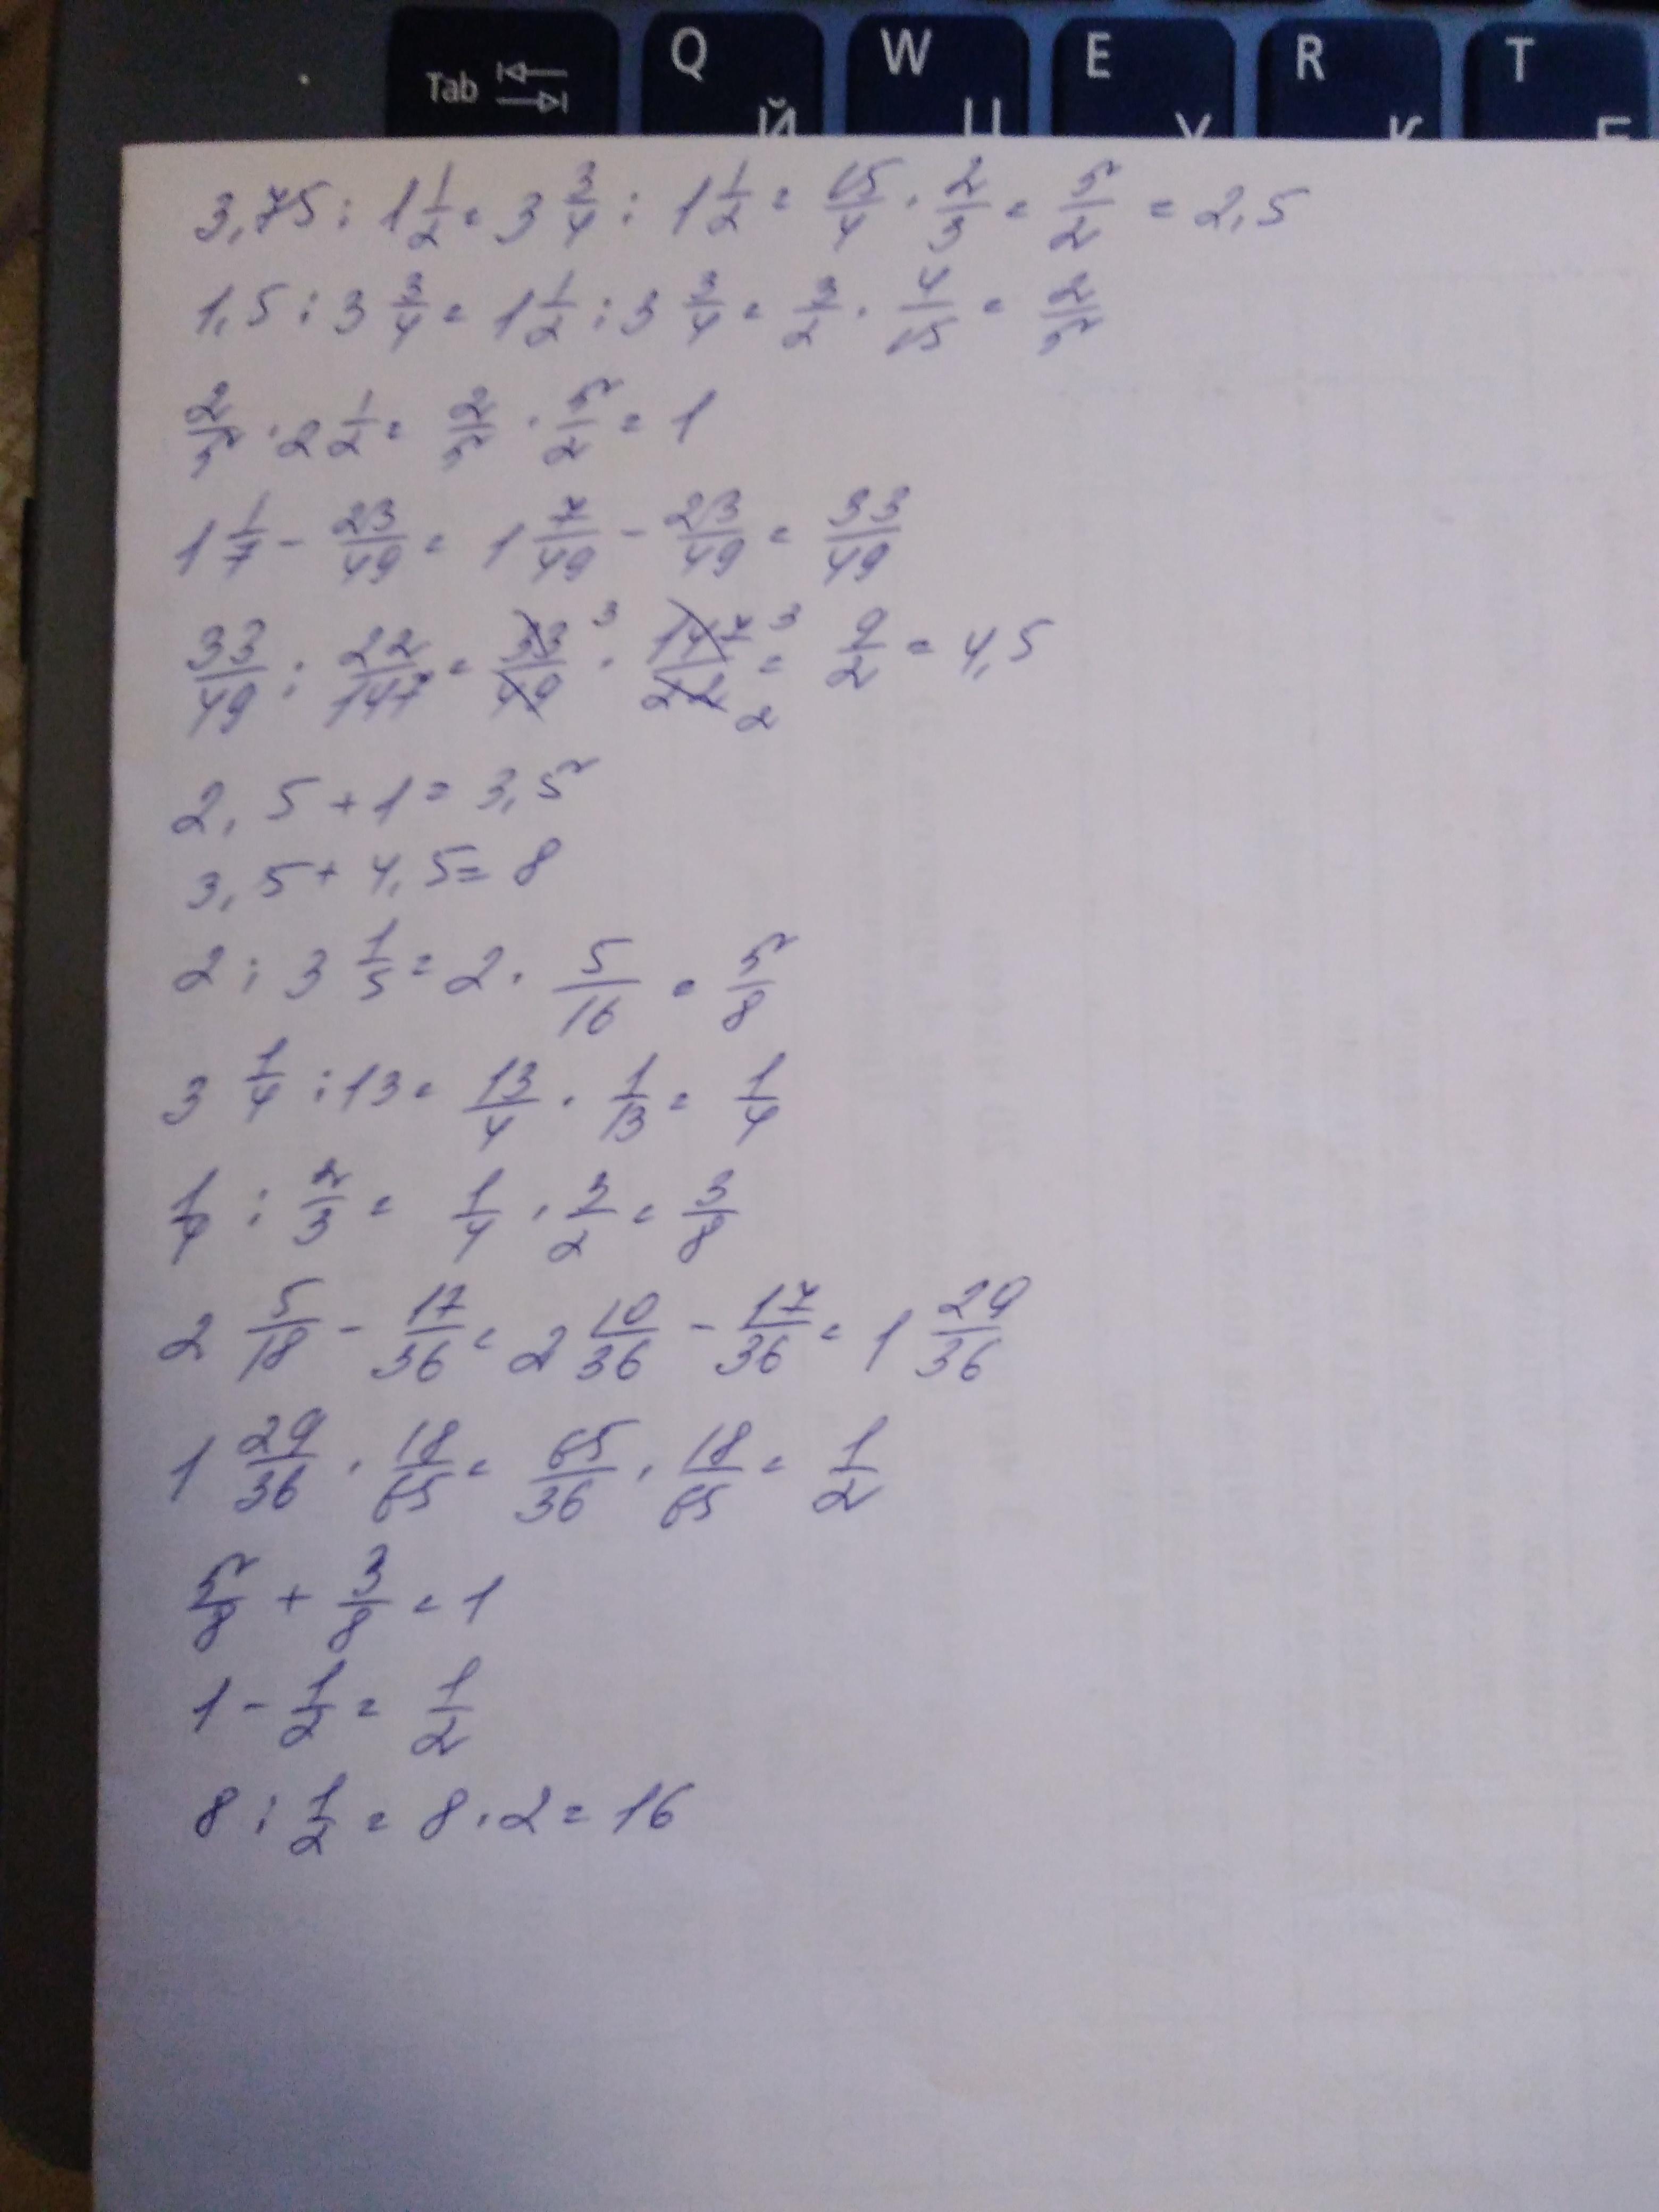 Tab Q W E R T
Й Ц У К Е
3,75 : 1 1/2 = 3 3/4 : 1 1/2 = 15/4 · 2/3 = 5/2 = 2,5
1,5 : 3 3/4 = 1 1/2 : 3 3/4 = 3/2 · 4/15 = 2/5
2/5 · 2 1/2 = 2/5 · 5/2 = 1
1 1/7 - 23/49 = 1 7/49 - 23/49 = 33/49
33/49 : 22/147 = 33/49 3 · 147/22 3 2 = 9/2 = 4,5
2,5 + 1 = 3,5
3,5 + 4,5 = 8
2 : 3 1/5 = 2 · 5/16 = 5/8
3 1/4 : 13 = 13/4 · 1/13 = 1/4
1/4 : 2/3 = 1/4 · 3/2 = 3/8
2 5/18 - 17/36 = 2 10/36 - 17/36 = 1 29/36
1 29/36 · 18/65 = 65/36 · 18/65 = 1/2
5/8 + 3/8 = 1
1 - 1/2 = 1/2
8 : 1/2 = 8 · 2 = 16